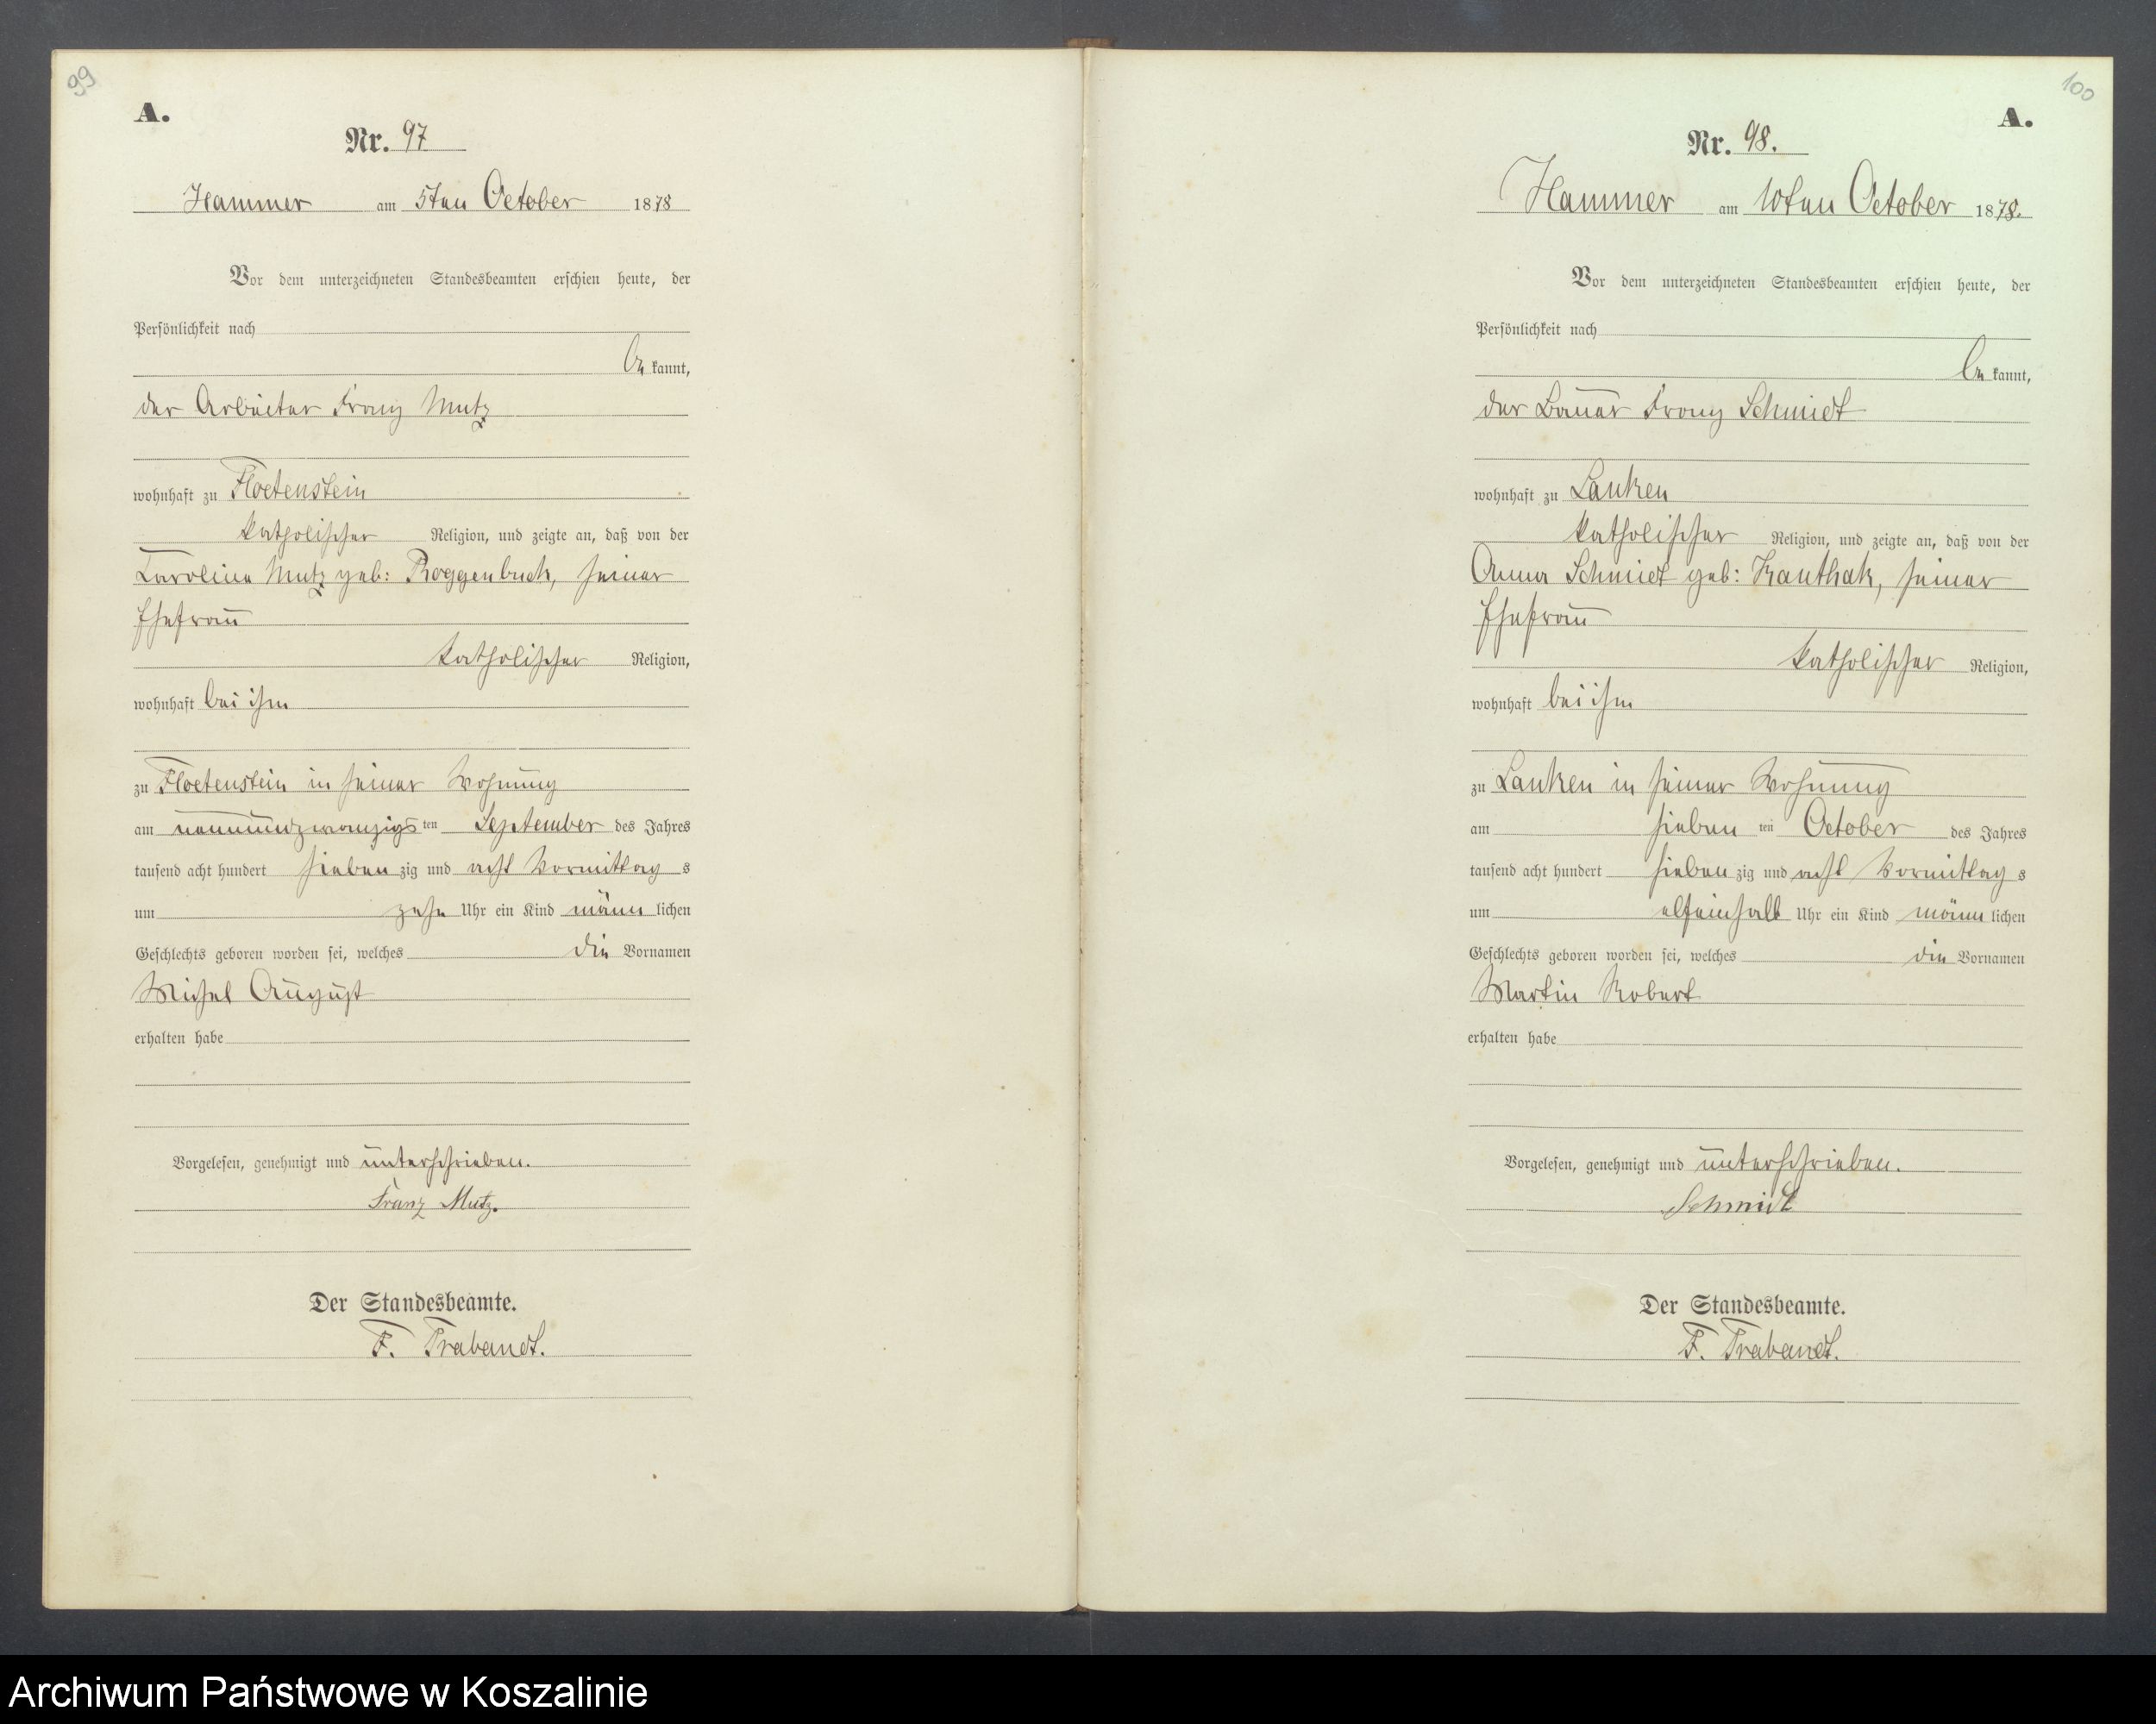 99
A.
Nr. 97
Hammer am 5ten October 1878
Vor dem unterzeichneten Standesbeamten erschien heute, der
Persönlichkeit nach
be kannt,
der Arbeiter Franz Mutz
wohnhaft zu Floetenstein
katholischer Religion, und zeigte an, daß von der
Caroline Mutz geb: Roggenbuck, seiner
Ehefrau
katholischer Religion,
wohnhaft bei ihm
zu Floetenstein in seiner Wohnung
am neunundzwanzigs ten September des Jahres
tausend acht hundert sieben zig und acht Vormittag s
um zehn Uhr ein Kind männ lichen
Geschlechts geboren worden sei, welches die Vornamen
Michel August
erhalten habe
Vorgelesen, genehmigt und unterschrieben.
Franz Mutz.
Der Standesbeamte.
F. Trabandt.
100
A.
Nr. 98.
Hammer am 10ten October 1878.
Vor dem unterzeichneten Standesbeamten erschien heute, der
Persönlichkeit nach
be kannt,
der Bauer Franz Schmidt
wohnhaft zu Lanken
katholischer Religion, und zeigte an, daß von der
Anna Schmidt geb: Kanthak, seiner
Ehefrau
katholischer Religion,
wohnhaft bei ihm
zu Lanken in seiner Wohnung
am sieben ten October des Jahres
tausend acht hundert sieben zig und acht Vormittag s
um elfeinhalb Uhr ein Kind männ lichen
Geschlechts geboren worden sei, welches die Vornamen
Martin Robert
erhalten habe
Vorgelesen, genehmigt und unterschrieben.
Schmidt
Der Standesbeamte.
F. Trabandt.
Archiwum Państwowe w Koszalinie